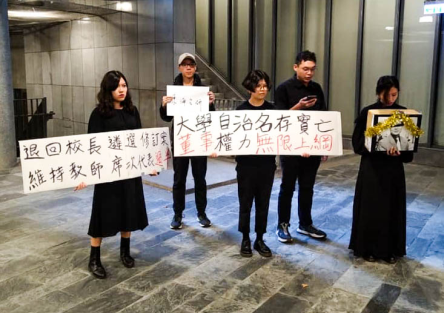 退回校長遴選修訂案
維持教師席次代表
大學自治名存實亡
董事權力無限上綱